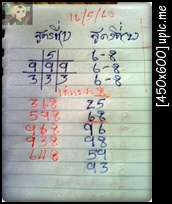 16/5/60
สูตรที่(1) สูตรที่(2)
5 6-8
9 9 9 6-8
3 3 3 6-8
368 25
598 68
968 96
938 98
648 59
93
[450x600] upic.me